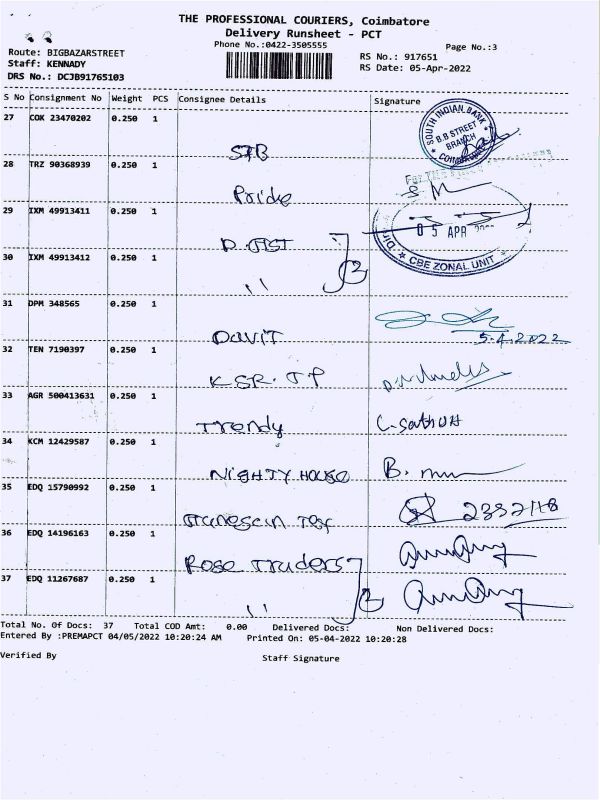 THE PROFESSIONAL COURIERS, Coimbatore
Delivery Runsheet - PCT
Phone No.:0422-3505555
Page No.:3
Route: BIGBAZARSTREET
Staff: KENNADY
DRS No.: DCJB91765103
RS No.: 917651
RS Date: 05-Apr-2022
S No Consignment No Weight PCS Consignee Details Signature
27 COK 23470202 0.250 1
STB
SOUTH INDIAN BANK
B.B STREET
BRANCH
28 TRZ 90368939 0.250 1
Pride
29 IXM 49913411 0.250 1
05 APR
CBE ZONAL UNIT
30 IXM 49913412 0.250 1
"
31 DPM 348565 0.250 1
Davit
5.4.2022
32 TEN 7190397 0.250 1
KSR. JP
33 AGR 500413631 0.250 1
Trendy
34 KCM 12429587 0.250 1
NIGHTY HOUSE
35 EDQ 15790992 0.250 1
36 EDQ 14196163 0.250 1
Rose Truders
37 EDQ 11267687 0.250 1
"
Total No. Of Docs: 37 Total COD Amt: 0.00 Delivered Docs: Non Delivered Docs:
Entered By :PREMAPCT 04/05/2022 10:20:24 AM Printed On: 05-04-2022 10:20:28
Verified By Staff Signature